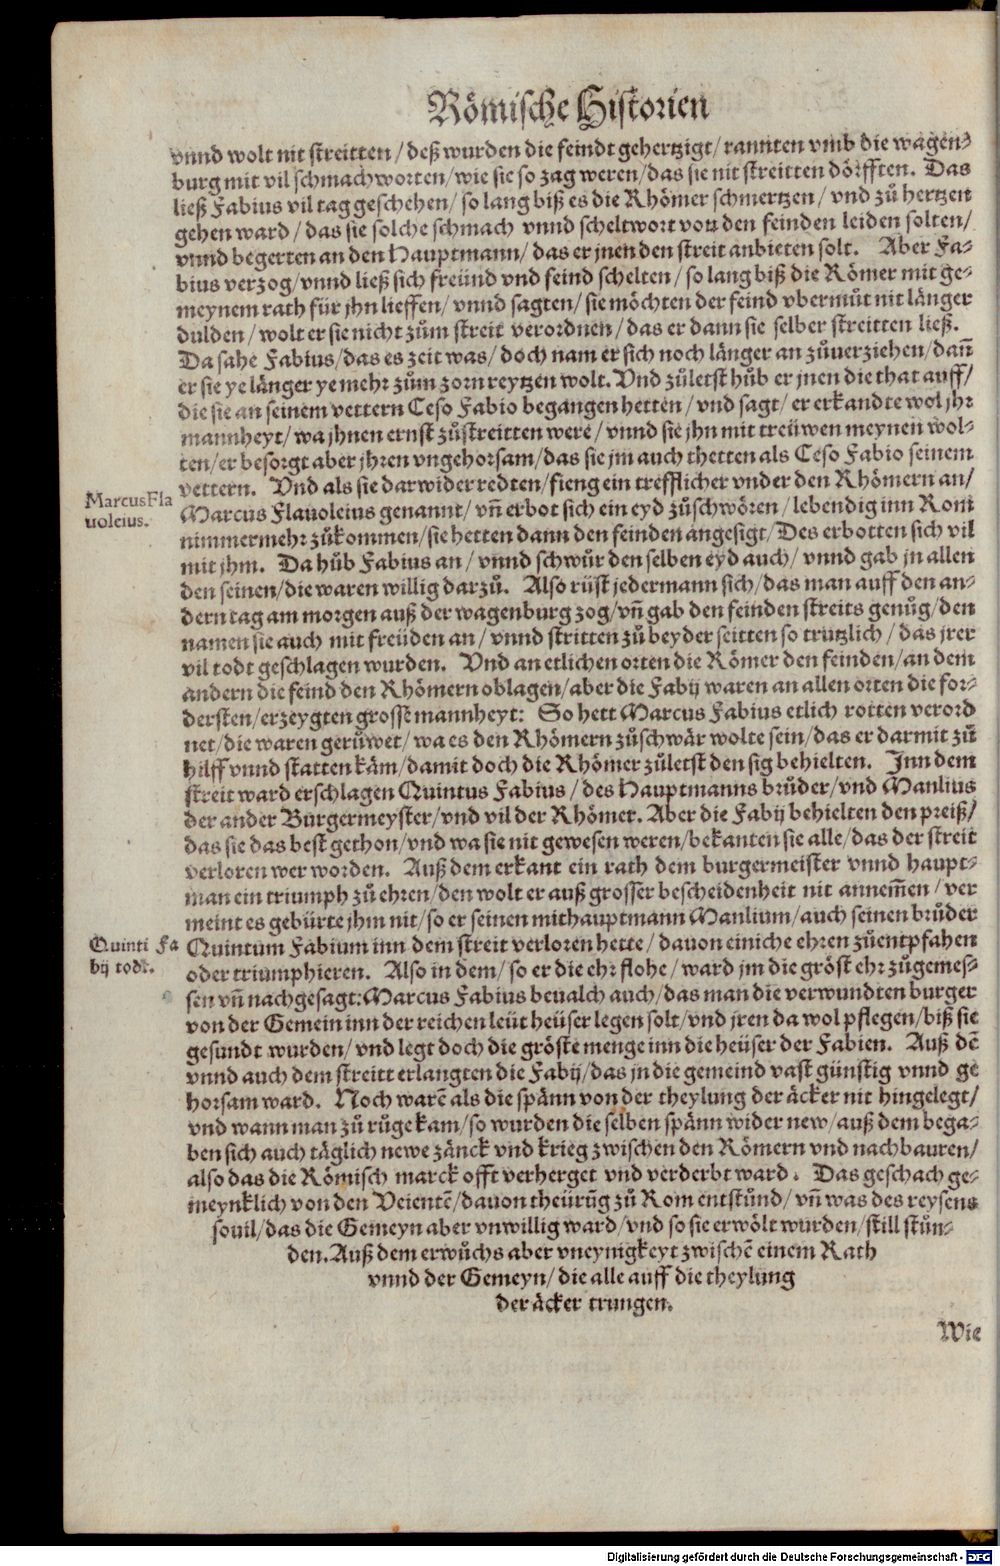 Römische Historien
vnnd wolt nit streitten/deß wurden die feindt gehertzigt/rannten vmb die wagen-
burg mit vil schmachworten/wie sie so zag weren/das sie nit streitten dörfften. Das
ließ Fabius vil tag geschehen/so lang biß es die Rhömer schmertzen/vnd zů hertzen
gehen ward/das sie solche schmach vnnd scheltwort von den feinden leiden solten/
vnnd begerten an den Hauptmann/das er jnen den streit anbieten solt. Aber Fa-
bius verzog/vnnd ließ sich freünd vnd feind schelten/so lang biß die Römer mit ge-
meynem rath für jhn lieffen/vnnd sagten/sie möchten der feind vbermůt nit länger
dulden/wolt er sie nicht zům streit verordnen/das er dann sie selber streitten ließ.
Da sahe Fabius/das es zeit was/doch nam er sich noch länger an zůuerziehen/dañ
er sie ye länger ye mehr zům zorn reytzen wolt. Vnd zůletst hůb er jnen die that auff/
die sie an seinem vettern Ceso Fabio begangen hetten/vnd sagt/er erkandte wol jhr
mannheyt/wa jhnen ernst zůstreitten were/vnnd sie jhn mit treüwen meynen wol-
ten/er besorgt aber jhren vngehorsam/das sie jm auch thetten als Ceso Fabio seinem
vettern. Vnd als sie darwider redten/fieng ein trefflicher vnder den Rhömern an/
Marcus Fla
uoleius.
Marcus Flauoleius genannt/vñ erbot sich ein eyd zůschwören/lebendig inn Rom
nimmermehr zůkommen/sie hetten dann den feinden angesigt/Des erbotten sich vil
mit jhm. Da hůb Fabius an/vnnd schwůr den selben eyd auch/vnnd gab jn allen
den seinen/die waren willig darzů. Also rüst jedermann sich/das man auff den an-
dern tag am morgen auß der wagenburg zog/vñ gab den feinden streits genůg/den
namen sie auch mit freüden an/vnnd stritten zů beyder seitten so trutzlich/das jrer
vil todt geschlagen wurden. Vnd an etlichen orten die Römer den feinden/an dem
andern die feind den Rhömern oblagen/aber die Fabij waren an allen orten die for-
dersten/erzeygten grosse mannheyt: So hett Marcus Fabius etlich rotten verord
net/die waren gerůwet/wa es den Rhömern zůschwär wolte sein/das er darmit zů
hilff vnnd statten käm/damit doch die Rhömer zůletst den sig behielten. Inn dem
streit ward erschlagen Quintus Fabius/des Hauptmanns brůder/vnd Manlius
der ander Burgermeyster/vnd vil der Rhömer. Aber die Fabij behielten den preiß/
das sie das best gethon/vnd wa sie nit gewesen weren/bekanten sie alle/das der streit
verloren wer worden. Auß dem erkant ein rath dem burgermeister vnnd haupt-
man ein triumph zů ehren/den wolt er auß grosser bescheidenheit nit annem̃en/ver
meint es gebürte jhm nit/so er seinen mithauptmann Manlium/auch seinen brůder
Quinti Fa
bij todt.
Quintum Fabium inn dem streit verloren hette/dauon einiche ehren zůentpfahen
oder triumphieren. Also in dem/so er die ehr flohe/ward jm die gröst ehr zůgemes-
sen vñ nachgesagt: Marcus Fabius beualch auch/das man die verwundten burger
von der Gemein inn der reichen leüt heüser legen solt/vnd jren da wol pflegen/biß sie
gesundt wurden/vnd legt doch die gröste menge inn die heüser der Fabien. Auß dẽ
vnnd auch dem streitt erlangten die Fabij/das jn die gemeind vast günstig vnnd ge
horsam ward. Noch warẽ als die spänn von der theylung der äcker nit hingelegt/
vnd wann man zů růge kam/so wurden die selben spänn wider new/auß dem bega-
ben sich auch täglich newe zänck vnd krieg zwischen den Römern vnd nachbauren/
also das die Römisch marck offt verherget vnd verderbt ward. Das geschach ge-
meynklich von den Veientẽ/dauon theürũg zů Rom entstůnd/vñ was des reysens
souil/das die Gemeyn aber vnwillig ward/vnd so sie erwölt wurden/still stůn-
den. Auß dem erwůchs aber vneynigkeyt zwischẽ einem Rath
vnnd der Gemeyn/die alle auff die theylung
der äcker trungen.
Wie
Digitalisierung gefördert durch die Deutsche Forschungsgemeinschaft - DFG